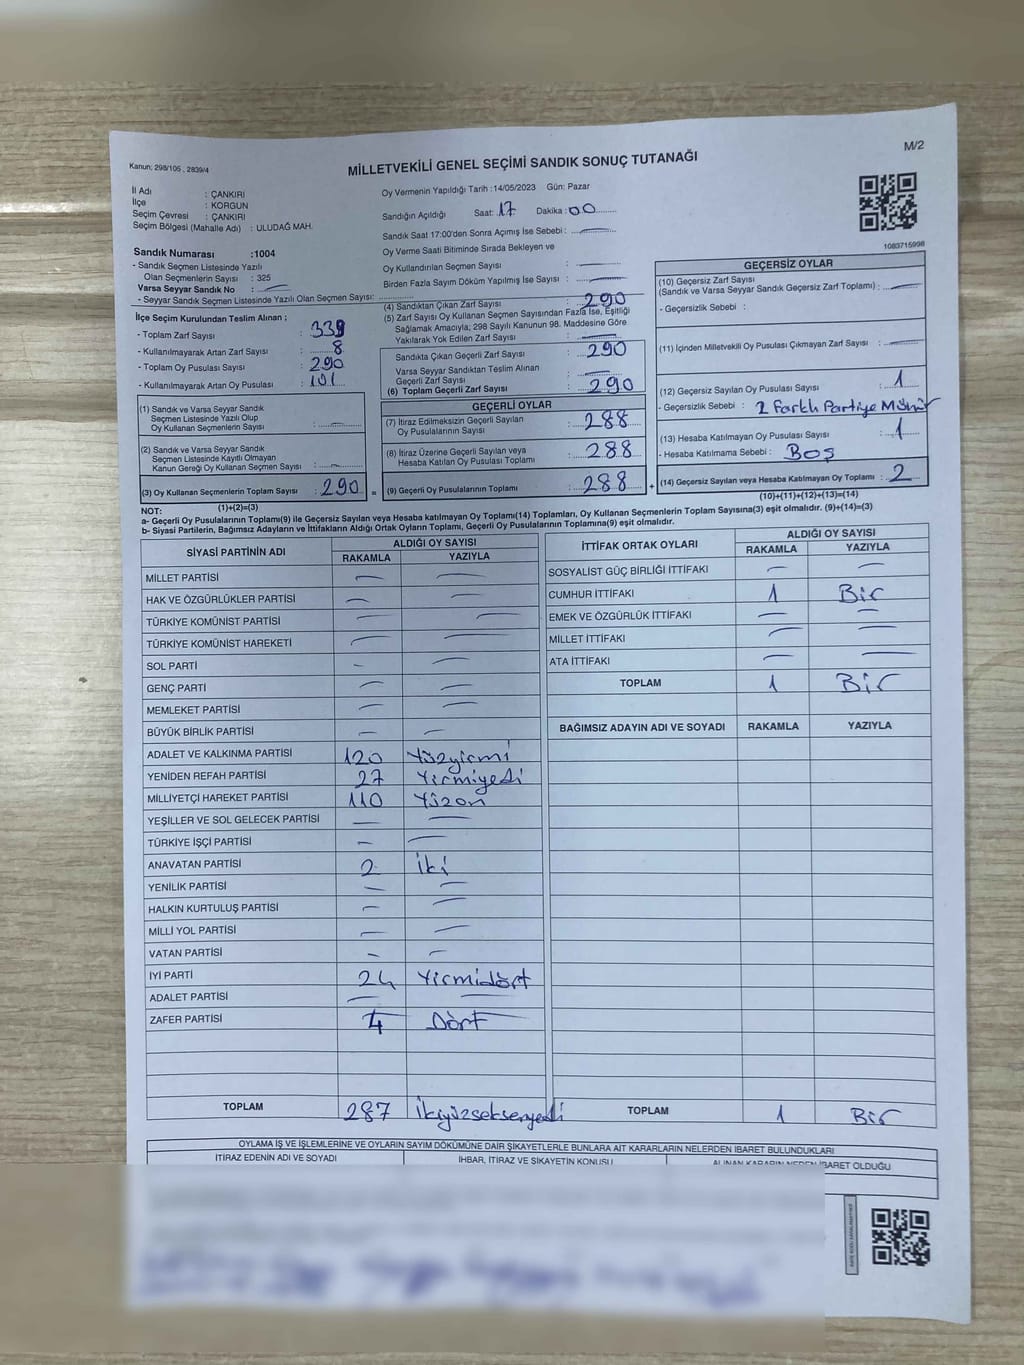 Kanun: 298/105 , 2839/4
MİLLETVEKİLİ GENEL SEÇİMİ SANDIK SONUÇ TUTANAĞI
M/2
İl Adı : ÇANKIRI
İlçe : KORGUN
Seçim Çevresi : ÇANKIRI
Seçim Bölgesi (Mahalle Adı) : ULUDAĞ MAH.
Sandık Numarası :1004
- Sandık Seçmen Listesinde Yazılı
Olan Seçmenlerin Sayısı : 325
Varsa Seyyar Sandık No :
- Seyyar Sandık Seçmen Listesinde Yazılı Olan Seçmen Sayısı:
Oy Vermenin Yapıldığı Tarih :14/05/2023 Gün: Pazar
Sandığın Açıldığı Saat: 17 Dakika : 00
Sandık Saat 17:00'den Sonra Açımış İse Sebebi :
Oy Verme Saati Bitiminde Sırada Bekleyen ve
Oy Kullandırılan Seçmen Sayısı :
Birden Fazla Sayım Döküm Yapılmış İse Sayısı :
1083715998
İlçe Seçim Kurulundan Teslim Alınan ;
- Toplam Zarf Sayısı : 339
- Kullanılmayarak Artan Zarf Sayısı : 8
- Toplam Oy Pusulası Sayısı : 290
- Kullanılmayarak Artan Oy Pusulası : 101
(1) Sandık ve Varsa Seyyar Sandık
Seçmen Listesinde Yazılı Olup
Oy Kullanan Seçmenlerin Sayısı :
(2) Sandık ve Varsa Seyyar Sandık
Seçmen Listesinde Kayıtlı Olmayan
Kanun Gereği Oy Kullanan Seçmen Sayısı :
(3) Oy Kullanan Seçmenlerin Toplam Sayısı : 290
(1)+(2)=(3)
(4) Sandıktan Çıkan Zarf Sayısı : 290
(5) Zarf Sayısı Oy Kullanan Seçmen Sayısından Fazla İse, Eşitliği
Sağlamak Amacıyla; 298 Sayılı Kanunun 98. Maddesine Göre
Yakılarak Yok Edilen Zarf Sayısı :
Sandıkta Çıkan Geçerli Zarf Sayısı : 290
Varsa Seyyar Sandıktan Teslim Alınan
Geçerli Zarf Sayısı :
(6) Toplam Geçerli Zarf Sayısı : 290
GEÇERLİ OYLAR
(7) İtiraz Edilmeksizin Geçerli Sayılan
Oy Pusulalarının Sayısı : 288
(8) İtiraz Üzerine Geçerli Sayılan veya
Hesaba Katılan Oy Pusulası Toplamı : 288
= (9) Geçerli Oy Pusulalarının Toplamı : 288 +
GEÇERSİZ OYLAR
(10) Geçersiz Zarf Sayısı
(Sandık ve Varsa Seyyar Sandık Geçersiz Zarf Toplamı) :
- Geçersizlik Sebebi :
(11) İçinden Milletvekili Oy Pusulası Çıkmayan Zarf Sayısı :
(12) Geçersiz Sayılan Oy Pusulası Sayısı : 1
- Geçersizlik Sebebi : 2 Farklı Partiye Mühür
(13) Hesaba Katılmayan Oy Pusulası Sayısı : 1
- Hesaba Katılmama Sebebi : Boş
(14) Geçersiz Sayılan veya Hesaba Katılmayan Oy Toplamı : 2
(10)+(11)+(12)+(13)=(14)
NOT:
a- Geçerli Oy Pusulalarının Toplamı(9) ile Geçersiz Sayılan veya Hesaba katılmayan Oy Toplamı(14) Toplamları, Oy Kullanan Seçmenlerin Toplam Sayısına(3) eşit olmalıdır. (9)+(14)=(3)
b- Siyasi Partilerin, Bağımsız Adayların ve İttifakların Aldığı Ortak Oyların Toplamı, Geçerli Oy Pusulalarının Toplamına(9) eşit olmalıdır.
SİYASİ PARTİNİN ADI ALDIĞI OY SAYISI
RAKAMLA YAZIYLA
MİLLET PARTİSİ
HAK VE ÖZGÜRLÜKLER PARTİSİ
TÜRKİYE KOMÜNİST PARTİSİ
TÜRKİYE KOMÜNİST HAREKETİ
SOL PARTİ
GENÇ PARTİ
MEMLEKET PARTİSİ
BÜYÜK BİRLİK PARTİSİ
ADALET VE KALKINMA PARTİSİ 120 Yüzyirmi
YENİDEN REFAH PARTİSİ 27 Yirmiyedi
MİLLİYETÇİ HAREKET PARTİSİ 110 Yüzon
YEŞİLLER VE SOL GELECEK PARTİSİ
TÜRKİYE İŞÇİ PARTİSİ
ANAVATAN PARTİSİ 2 İki
YENİLİK PARTİSİ
HALKIN KURTULUŞ PARTİSİ
MİLLİ YOL PARTİSİ
VATAN PARTİSİ
İYİ PARTİ 24 Yirmidört
ADALET PARTİSİ
ZAFER PARTİSİ 4 Dört
TOPLAM 287 İkiyüzseksenyedi
İTTİFAK ORTAK OYLARI ALDIĞI OY SAYISI
RAKAMLA YAZIYLA
SOSYALİST GÜÇ BİRLİĞİ İTTİFAKI
CUMHUR İTTİFAKI 1 Bir
EMEK VE ÖZGÜRLÜK İTTİFAKI
MİLLET İTTİFAKI
ATA İTTİFAKI
TOPLAM 1 Bir
BAĞIMSIZ ADAYIN ADI VE SOYADI RAKAMLA YAZIYLA
TOPLAM 1 Bir
OYLAMA İŞ VE İŞLEMLERİNE VE OYLARIN SAYIM DÖKÜMÜNE DAİR ŞİKAYETLERLE BUNLARA AİT KARARLARIN NELERDEN İBARET BULUNDUKLARI
İTİRAZ EDENİN ADI VE SOYADI İHBAR, İTİRAZ VE ŞİKAYETİN KONUSU ALINAN KARARIN NEDEN İBARET OLDUĞU